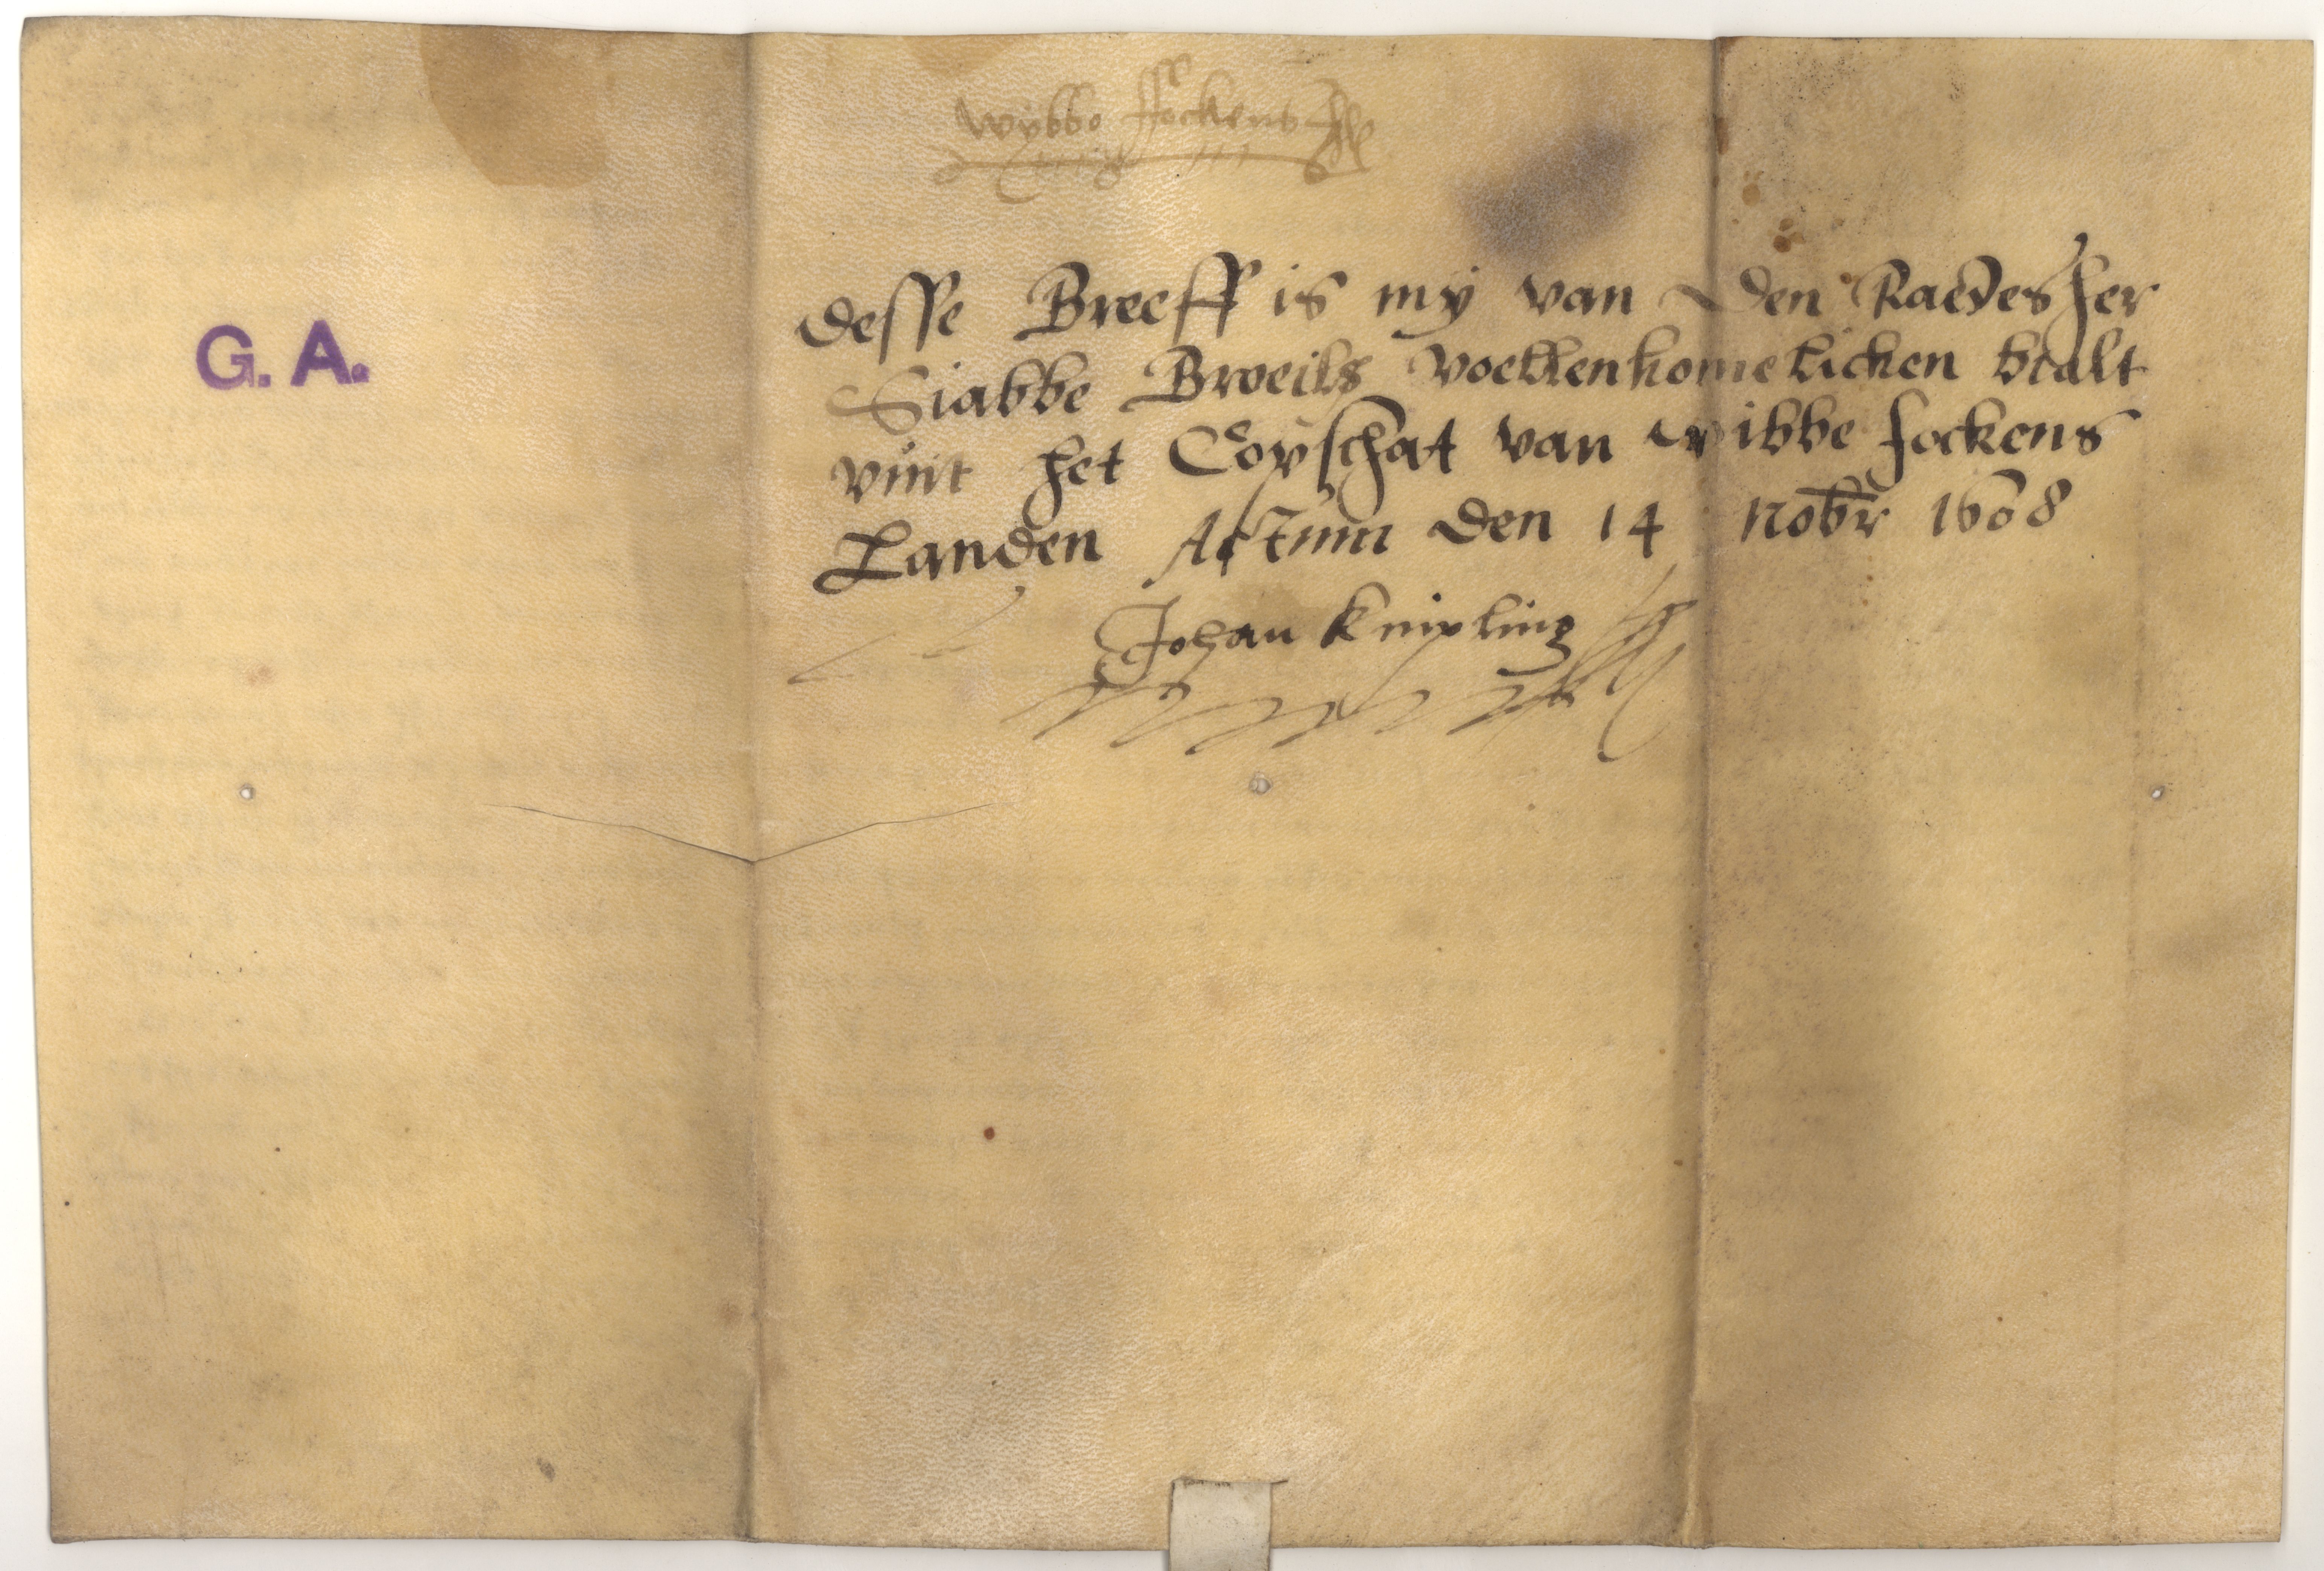 Wybbo Fockens
G. A.
Desse Breeff is my van den Raedesher
Siabbe Broeils voellenkomelicken btalt
vuit het Copschat van wibbe fockens
Landen Actum den 14 Nobr 1608
Johan Knipling